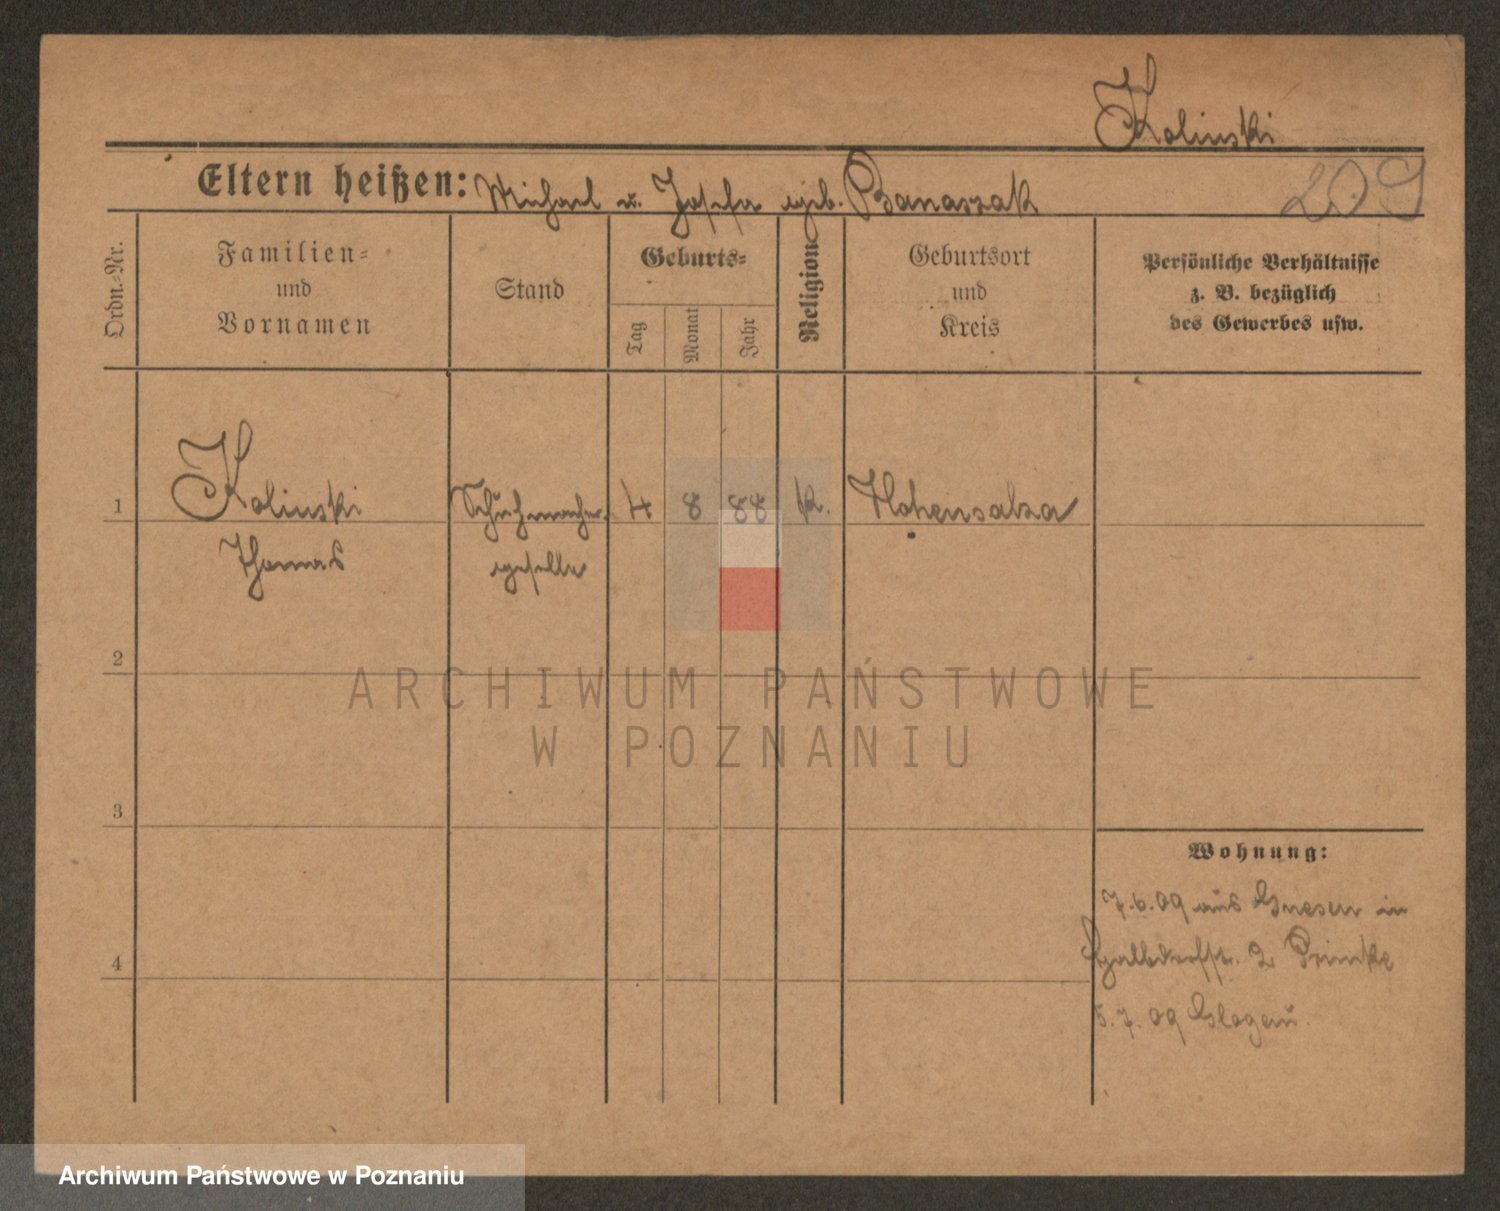 Kolinski
Eltern heißen: Michael u. Josefa geb. Banaszak
209
Ordn.-Nr.
Familien-
und
Vornamen
Stand
Geburts-
Tag
Monat
Jahr
Religion
Geburtsort
und
Kreis
Persönliche Verhältnisse
z. B. bezüglich
des Gewerbes usw.
1 Kolinski Schuhmacher- 4 8 88 k. Hohensalza
Thomas geselle
2
ARCHIWUM PAŃSTWOWE
W POZNANIU
3
Wohnung:
7.6.09 aus Gnesen in
2
4
5.7.09 Glogau
Archiwum Państwowe w Poznaniu